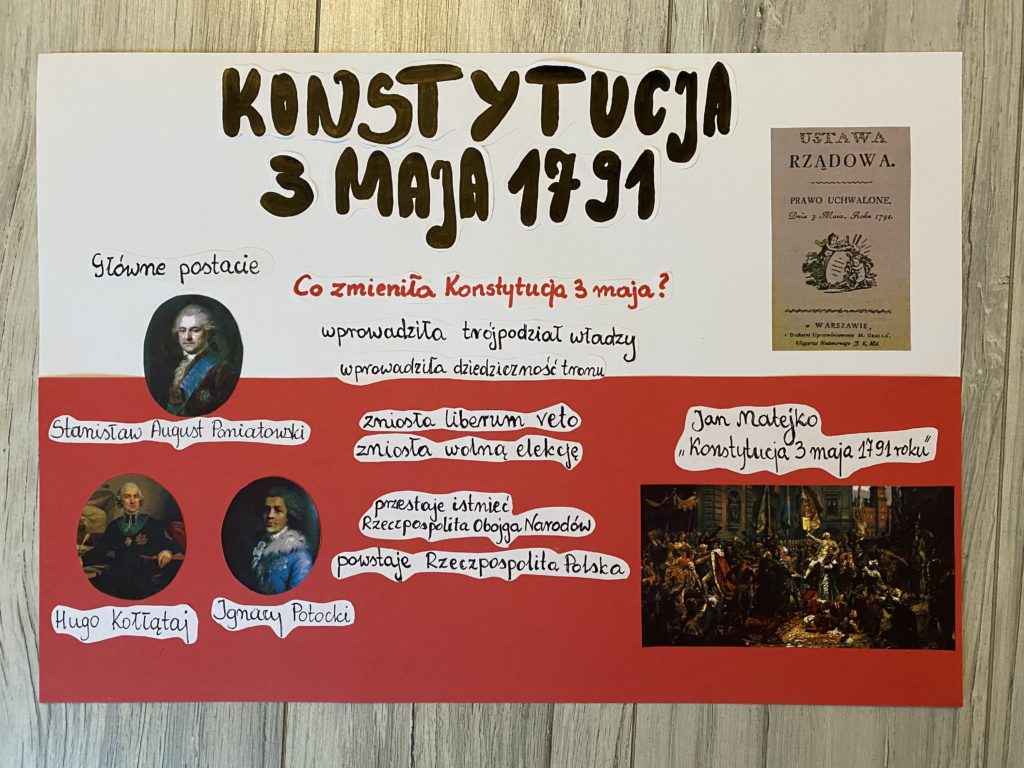 KONSTYTUCJA
3 MAJA 1791
USTAWA
RZĄDOWA.
PRAWO UCHWALONE.
Dnia 3. Maia, Roku 1791.
w WARSZAWIE,
Główne postacie
Co zmieniła Konstytucja 3 maja?
wprowadziła trójpodział władzy
wprowadziła dziedziczność tronu
Stanisław August Poniatowski
zniosła liberum veto
zniosła wolną elekcję
Jan Matejko
„Konstytucja 3 maja 1791 roku"
przestaje istnieć
Rzeczpospolita Obojga Narodów
powstaje Rzeczpospolita Polska
Hugo Kołłątaj
Ignacy Potocki